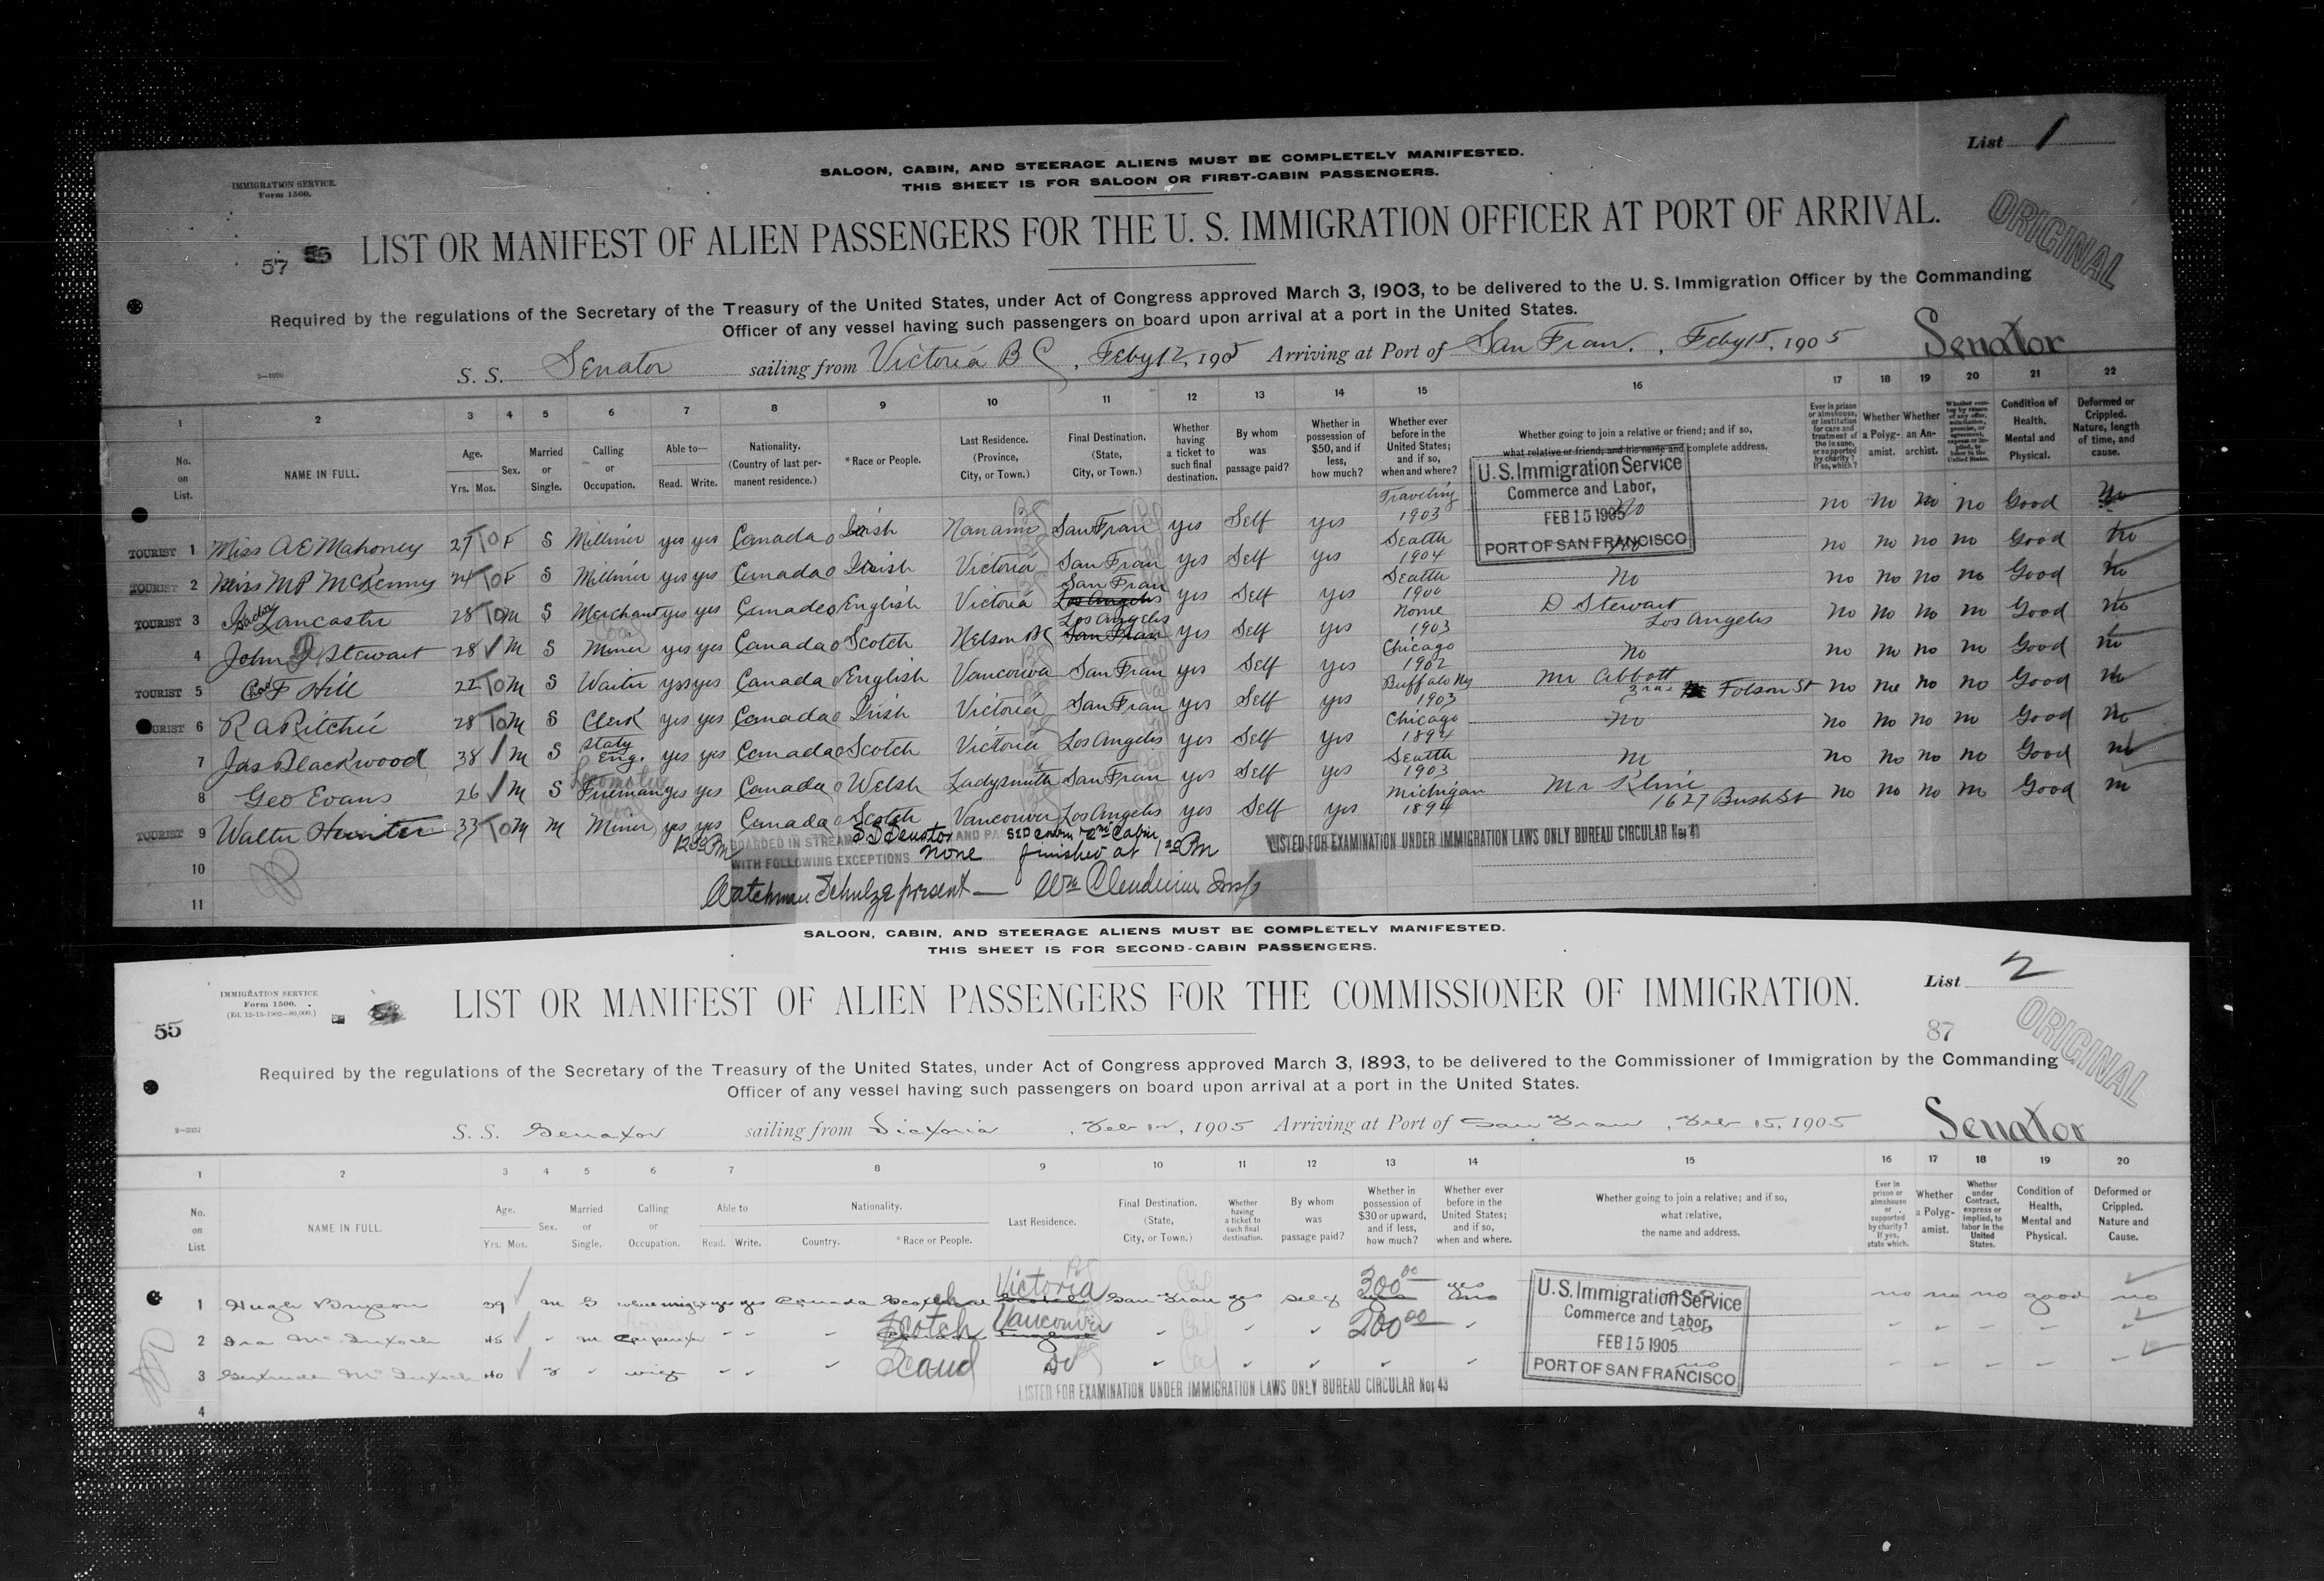 List 1
SALOON, CABIN, AND STEERAGE ALIENS MUST BE COMPLETELY MANIFESTED.
THIS SHEET IS FOR SALOON OR FIRST-CABIN PASSENGERS.
IMMIGRATION SERVICE.
Form 1500.
ORIGINAL
57 LIST OR MANIFEST OF ALIEN PASSENGERS FOR THE U. S. IMMIGRATION OFFICER AT PORT OF ARRIVAL.
Required by the regulations of the Secretary of the Treasury of the United States, under Act of Congress approved March 3, 1903, to be delivered to the U. S. Immigration Officer by the Commanding
Officer of any vessel having such passengers on board upon arrival at a port in the United States.
S. S. Senator sailing from Victoria B C, Feby 12, 1905 Arriving at Port of San Fran., Feby 15, 1905 Senator
1 2 3 4 5 6 7 8 9 10 11 12 13 14 15 16 17 18 19 20 21 22
No. on List. NAME IN FULL. Age. Yrs. Mos. Sex. Married or Single. Calling or Occupation. Able to— Read. Write. Nationality. (Country of last permanent residence.) *Race or People. Last Residence. (Province, City, or Town.) Final Destination. (State, City, or Town.) Whether having a ticket to such final destination. By whom was passage paid? Whether in possession of $50, and if less, how much? Whether ever before in the United States; and if so, when and where? Whether going to join a relative or friend; and if so, what relative or friend, and his name and complete address. Ever in prison or almshouse, or institution for care and treatment of the insane, or supported by charity? If so, which? Whether a Polygamist. Whether an Anarchist. Condition of Health. Mental and Physical. Deformed or Crippled. Nature, length of time, and cause.
U.S. Immigration Service
Commerce and Labor,
FEB 15 1905
PORT OF SAN FRANCISCO
TOURIST 1 Miss A E Mahoney 27 TO F S Milliner yes yes Canada Irish San Fran yes Self yes Traveling 1903 No no No No no Good No
TOURIST 2 Miss M P McKenny 24 TO F S Milliner yes yes Canada Irish Victoria San Fran yes Self yes Seattle 1904 no No no no Good No
TOURIST 3 Lancaster 28 TO M S Merchant yes yes Canada English Victoria San Fran Los Angelis yes Self yes Seattle 1900 No no No No no Good No
4 John D Stewart 28 M S Miner yes yes Canada Scotch Nelson BC Los Angelis San Fran yes Self yes Nome 1903 D Stewart Los Angelis no No No no Good no
TOURIST 5 F Hill 22 TO M S Waiter yes yes Canada English Vancouver San Fran yes Self yes Chicago 1902 No no No no no Good no
6 R A Ritchie 28 TO M S Clerk yes yes Canada Irish Victoria San Fran yes Self yes Buffalo Ny 1903 Mr Abbott Folsom St no No No no Good no
7 Jas Blackwood 38 M S Staty Eng. yes yes Canada Scotch Victoria Los Angelis yes Self yes Chicago 1894 No no No no no Good no
8 Geo Evans 26 M S Locomotive Fireman yes yes Canada Welsh Ladysmith San Fran yes Self yes Seattle 1903 no no No no no Good no
TOURIST 9 Walter Hunter 33 TO M M Miner yes yes Canada Scotch Vancouver Los Angelis yes Self yes Michigan 1894 Mr Kline 1627 Bush St no no no no Good no
10
11
BOARDED IN STREAM S S Senator AND
WITH FOLLOWING EXCEPTIONS None finished at 1 20 PM
LISTED FOR EXAMINATION UNDER IMMIGRATION LAWS ONLY BUREAU CIRCULAR No. 43
Watchman Schulze present — Wm Clendinin Insp
SALOON, CABIN, AND STEERAGE ALIENS MUST BE COMPLETELY MANIFESTED.
THIS SHEET IS FOR SECOND-CABIN PASSENGERS.
List 2
IMMIGRATION SERVICE
Form 1500.
(Ed. 12-13-1902—80,000.)
55 LIST OR MANIFEST OF ALIEN PASSENGERS FOR THE COMMISSIONER OF IMMIGRATION.
87
ORIGINAL
Required by the regulations of the Secretary of the Treasury of the United States, under Act of Congress approved March 3, 1893, to be delivered to the Commissioner of Immigration by the Commanding
Officer of any vessel having such passengers on board upon arrival at a port in the United States.
S. S. Senator sailing from Victoria, Feb 12, 1905 Arriving at Port of San Fran, Feb 15, 1905 Senator
1 2 3 4 5 6 7 8 9 10 11 12 13 14 15 16 17 18 19 20
No. on List. NAME IN FULL. Age. Yrs. Mos. Sex. Married or Single. Calling or Occupation. Able to Read. Write. Nationality. Country. *Race or People. Last Residence. Final Destination. (State, City, or Town.) Whether having a ticket to such final destination. By whom was passage paid? Whether in possession of $30 or upward, and if less, how much? Whether ever before in the United States; and if so, when and where. Whether going to join a relative; and if so, what relative, the name and address. Ever in prison or almshouse or supported by charity? If yes, state which. Whether a Polygamist. Whether under Contract, express or implied, to labor in the United States. Condition of Health, Mental and Physical. Deformed or Crippled. Nature and Cause.
1 Hugh Bryson 39 m S yes yes Canada Scotch Victoria San Fran yes Self 300 00 yes no no no no good no
2 Ira McIntosh 45 m Carpenter Scotch Vancouver 200 00
3 Gertrude McIntosh 40 wife Scand Do
4
U.S. Immigration Service
Commerce and Labor,
FEB 15 1905
PORT OF SAN FRANCISCO
LISTED FOR EXAMINATION UNDER IMMIGRATION LAWS ONLY BUREAU CIRCULAR No. 43